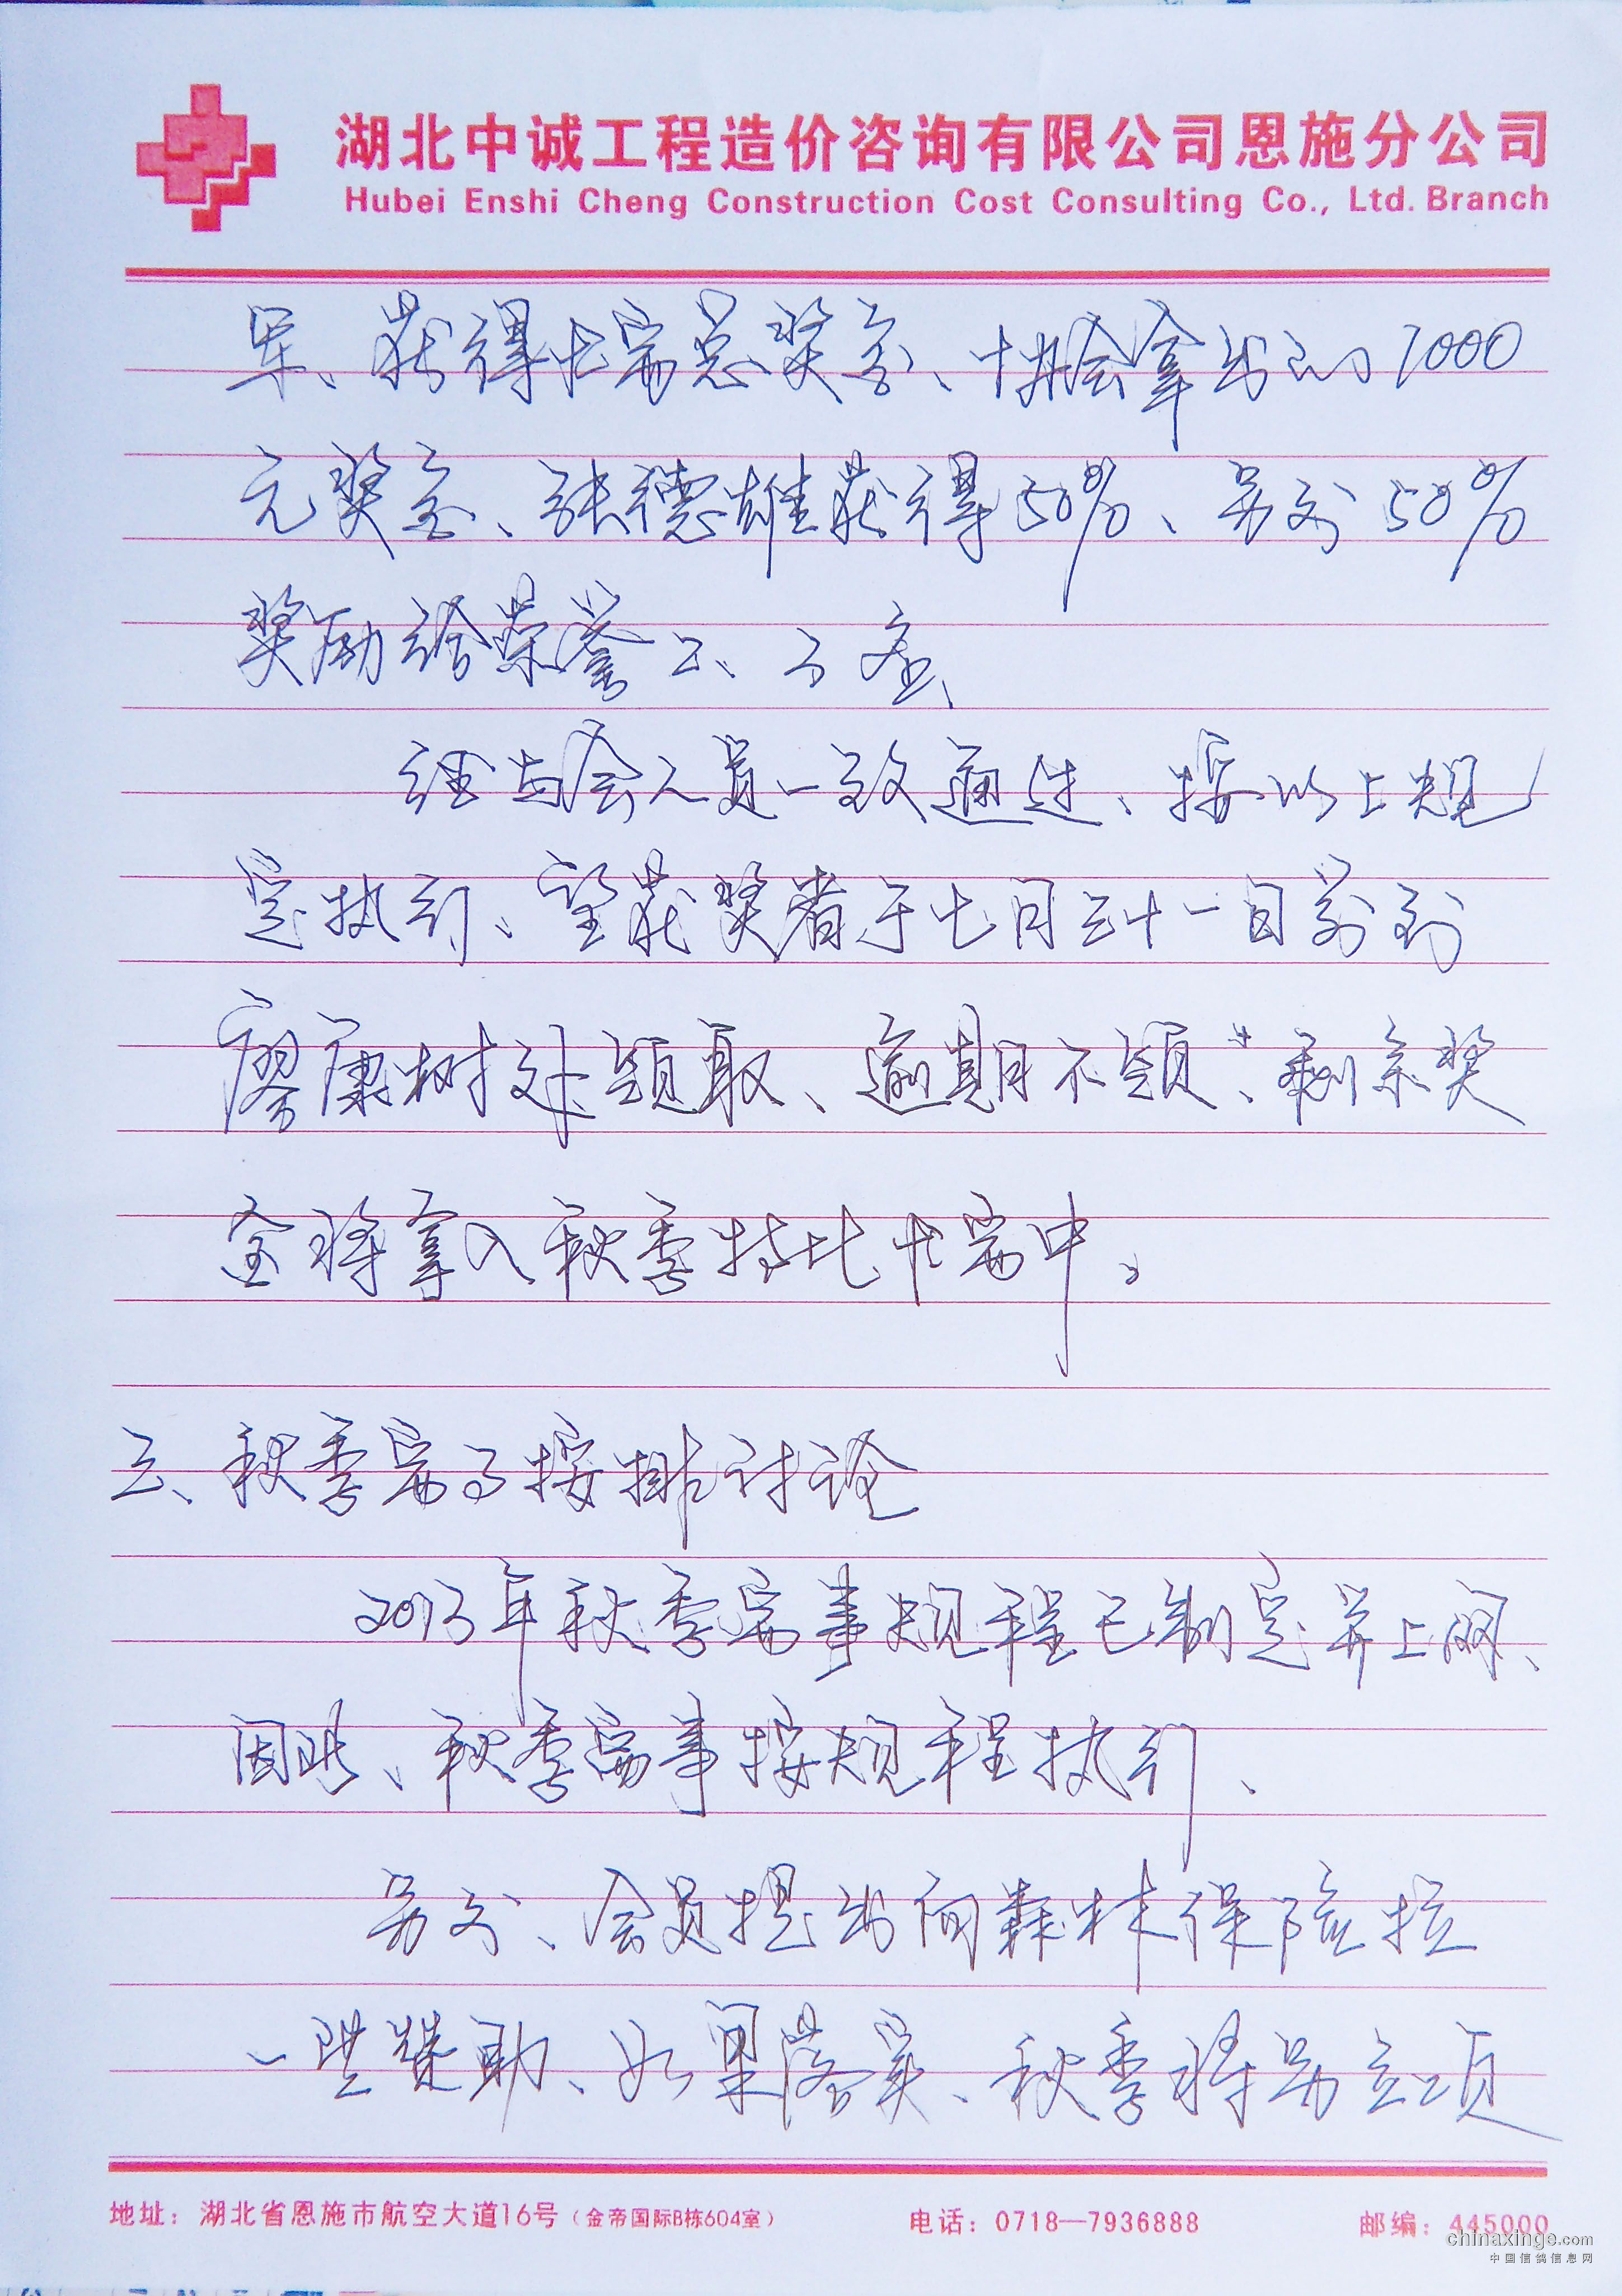 湖北中诚工程造价咨询有限公司恩施分公司
Hubei Enshi Cheng Construction Cost Consulting Co., Ltd. Branch
军、获得比赛总奖金、协会拿出的1000
元奖金、张德雄获得50%、另外50%
奖励给荣誉二、三名、
经与会人员一致通过、按以上规
定执行、望获奖者于七月三十一日前到
廖康树处领取、逾期不领、剩余奖
金将拿入秋季特比比赛中。
三、秋季赛事按排讨论
2013年秋季赛事规程已制定并上网、
因此、秋季赛事按规程执行、
另外、会员提出向森林保险拉
一些赞助、如果落实、秋季将另立项
地址：湖北省恩施市航空大道16号（金帝国际B栋604室） 电话：0718—7936888 邮编：445000
chinaxinge.com
中国信鸽信息网